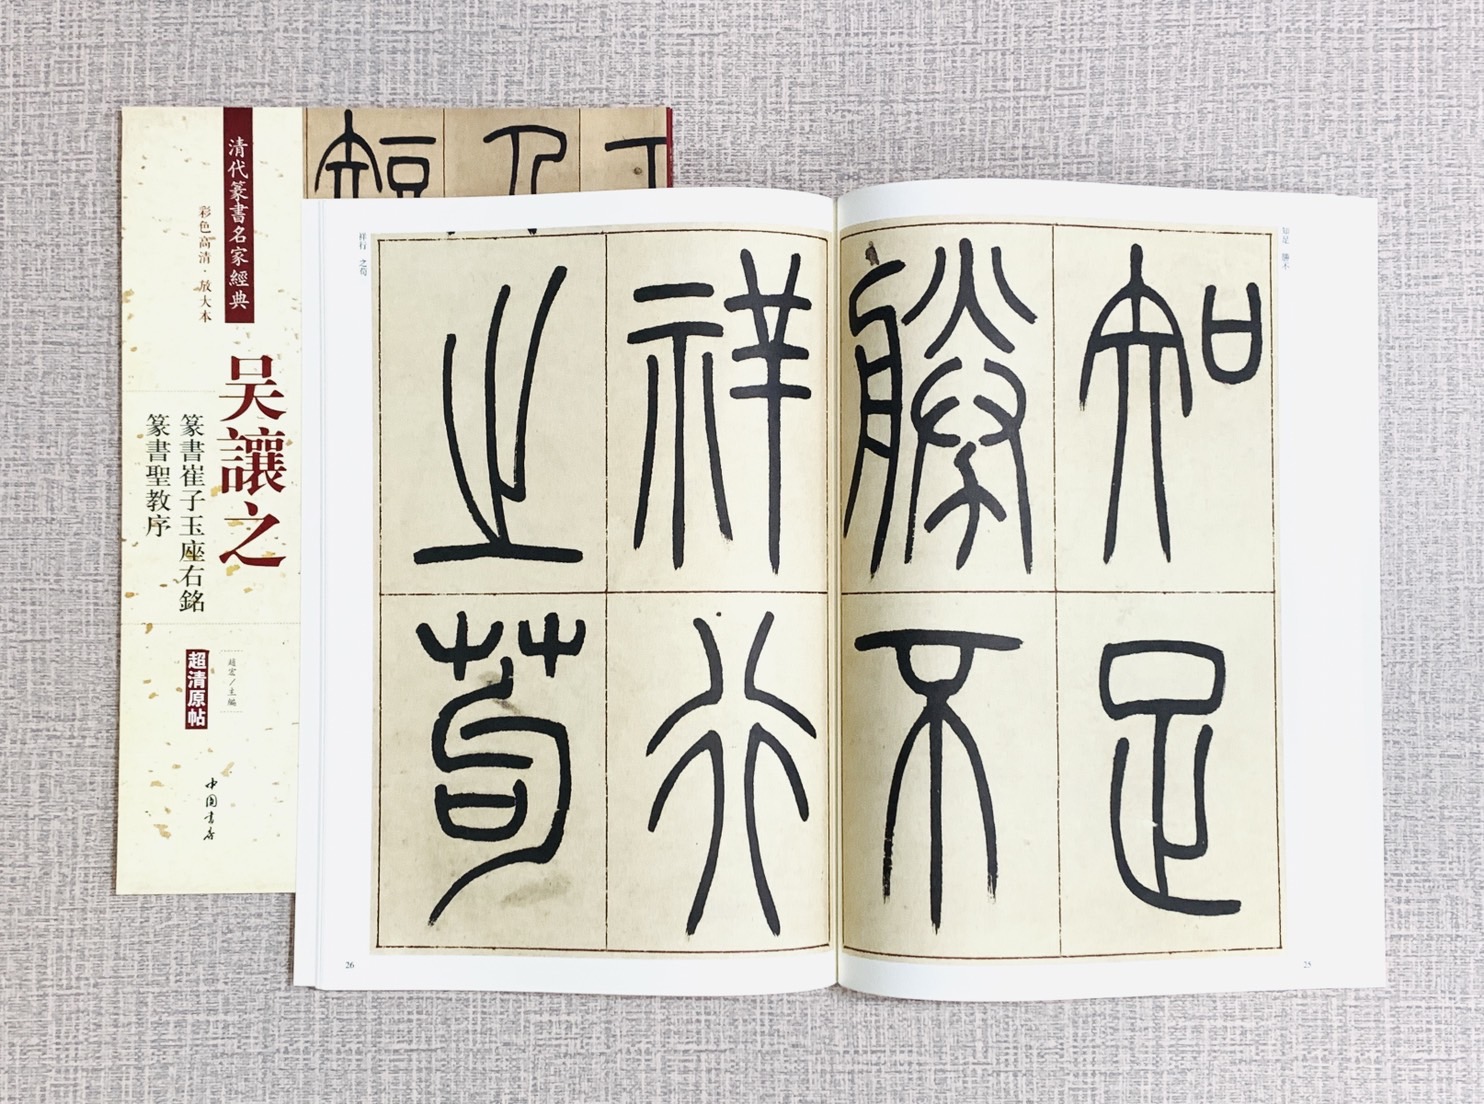 清代篆書名家經典
彩色高清·放大本
吴讓之
篆書崔子玉座右銘
篆書聖教序
趙宏/主編
超清原帖
中国书店
短
知足 勝不
知足
勝不
25
祥行 之苟
祥行
止苟
26